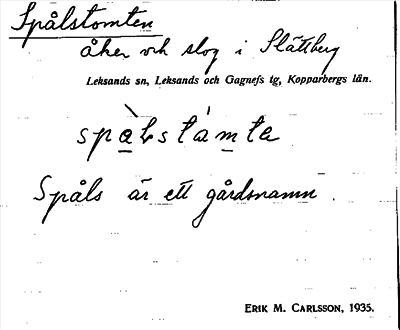 Spålstomten
åker och slog i Slättberg
Leksands sn, Leksands och Gagnefs tg, Kopparbergs län.
Spåls är ett gårdsnamn.
ERIK M. CARLSSON, 1935.